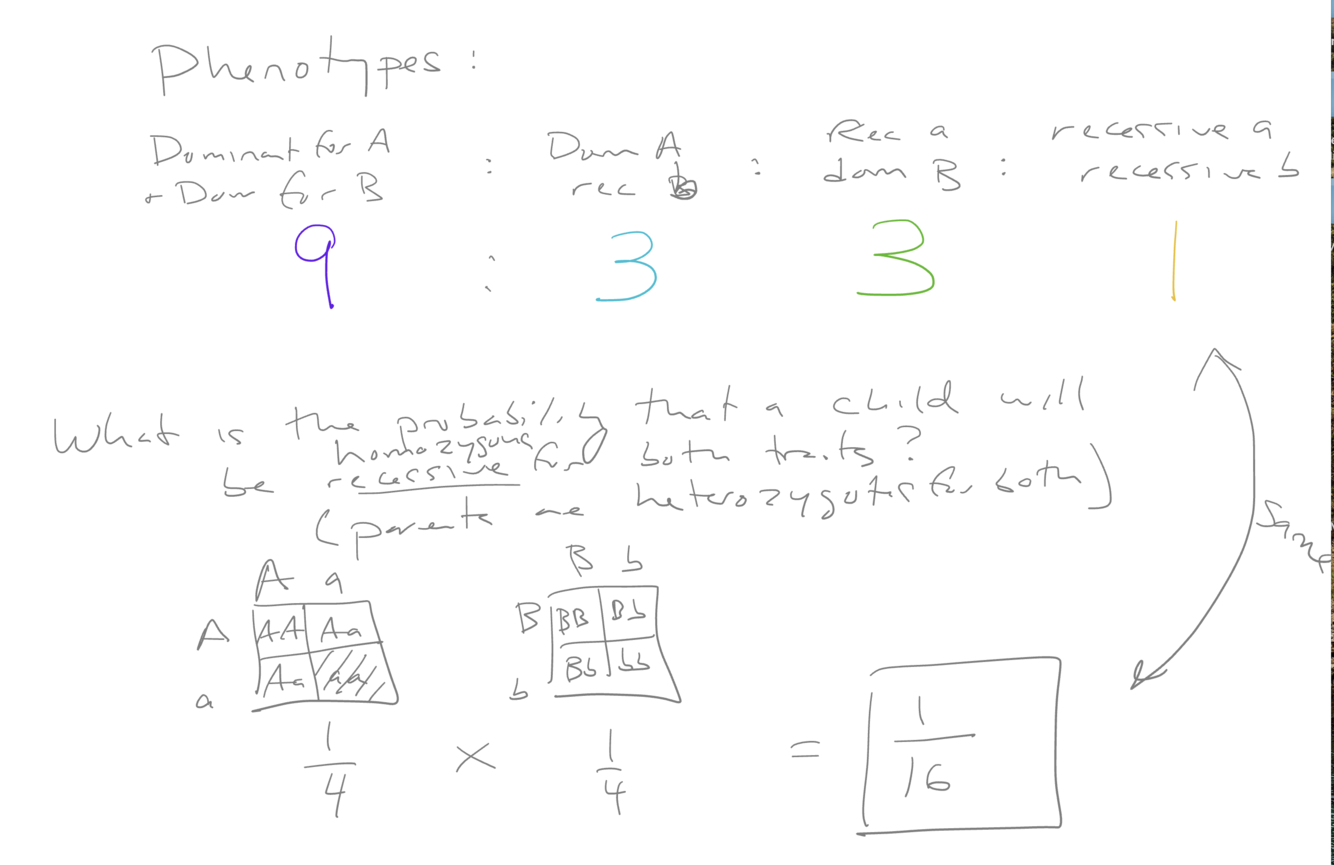 Phenotypes:
Dominant for A : Dom A : Rec a : recessive a
+ Dom for B rec b dom B recessive b
9 : 3 3 1
What is the probability that a child will
be homozygous recessive for both traits?
(parents are heterozygotes for both)
Same
A a B b
A AA Aa B BB Bb
a Aa aa b Bb bb
1/4 × 1/4 = 1/16